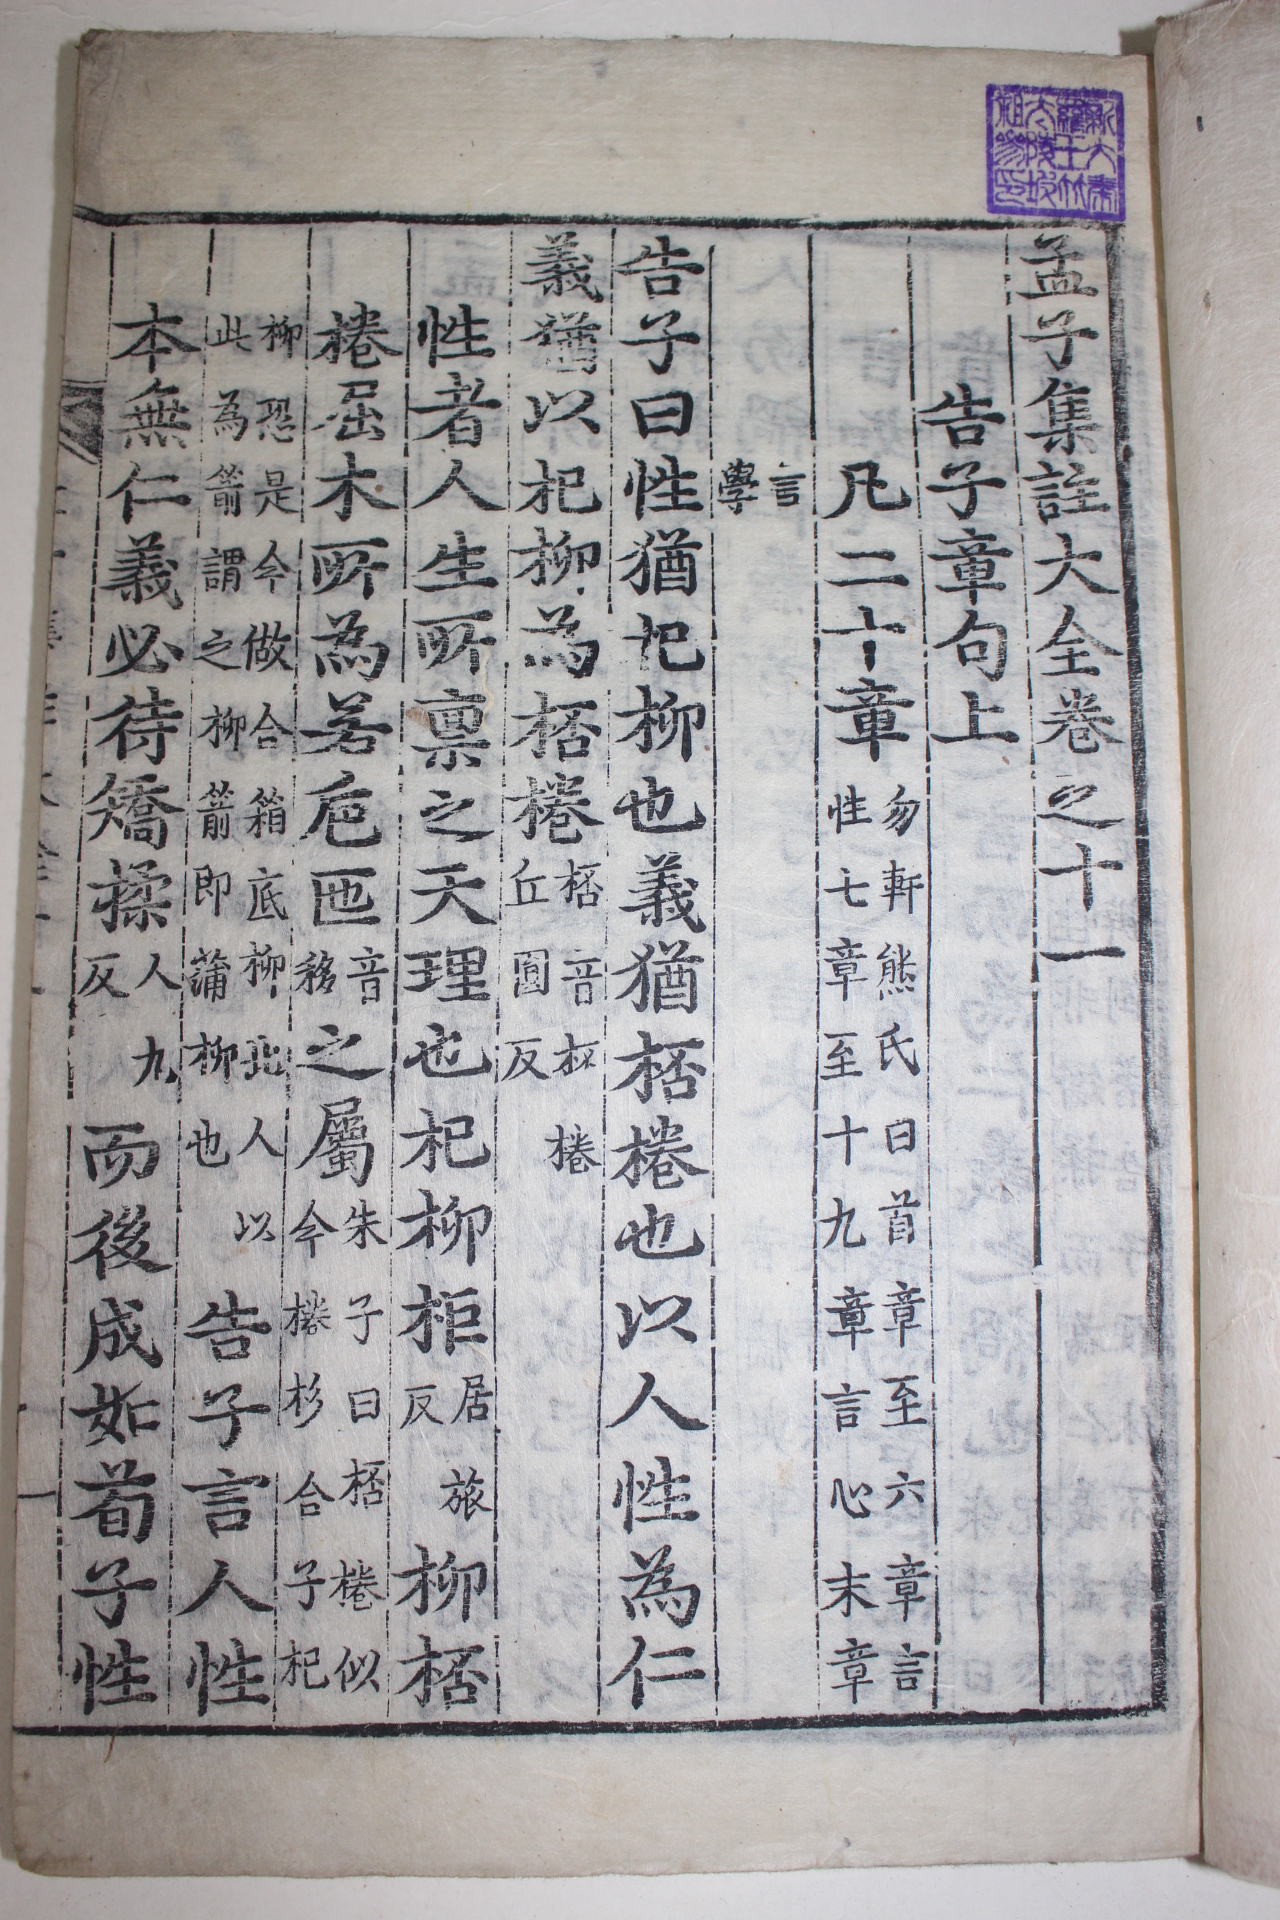 孟子集註大全卷之十一
告子章句上
凡二十章勿軒熊氏曰首章至六章言性七章至十九章言心末章
言學
告子曰性猶杞柳也義猶桮棬也以人性為仁
義猶以杞柳為桮棬桮音杯棬丘圓反
性者人生所稟之天理也杞柳柜居旅反柳桮
棬屈木所為若巵匜音移之屬朱子曰桮棬似今棬杉合子杞
柳恐是今做合箱底柳北人以此為箭謂之柳箭即蒲柳也告子言人性
本無仁義必待矯揉人九反而後成如荀子性